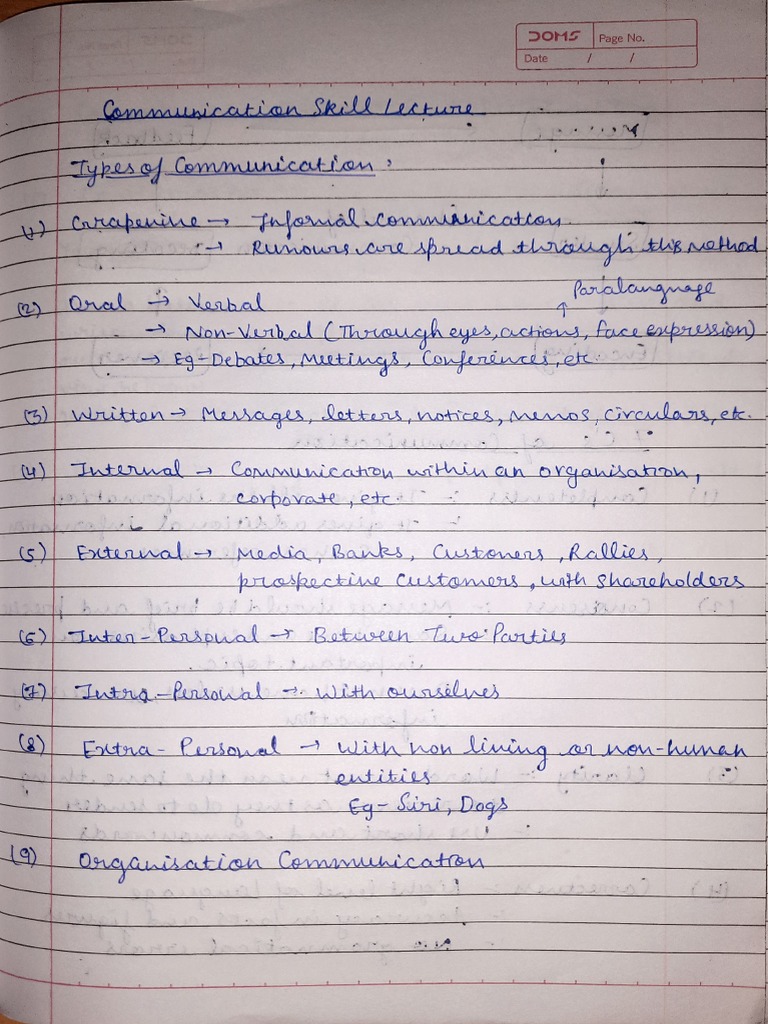 DOMS
Page No.
Date / /
Communication Skill Lecture
Types of Communication :
(1) Grapevine → Informal communication
→ Rumours are spread through this method
Paralanguage
(2) Oral → Verbal
↑
→ Non-Verbal (Through eyes, actions, face expression)
→ Eg- Debates, Meetings, Conferences, etc
(3) Written → Messages, letters, notices, memos, circulars, etc.
(4) Internal → Communication within an organisation,
corporate, etc
(5) External → Media, Banks, Customers, Rallies,
prospective customers, with shareholders
(6) Inter-Personal → Between Two Parties
(7) Intra-Personal → With ourselves
(8) Extra-Personal → With non living or non-human
entities
Eg- Siri, Dogs
(9) Organisation Communication